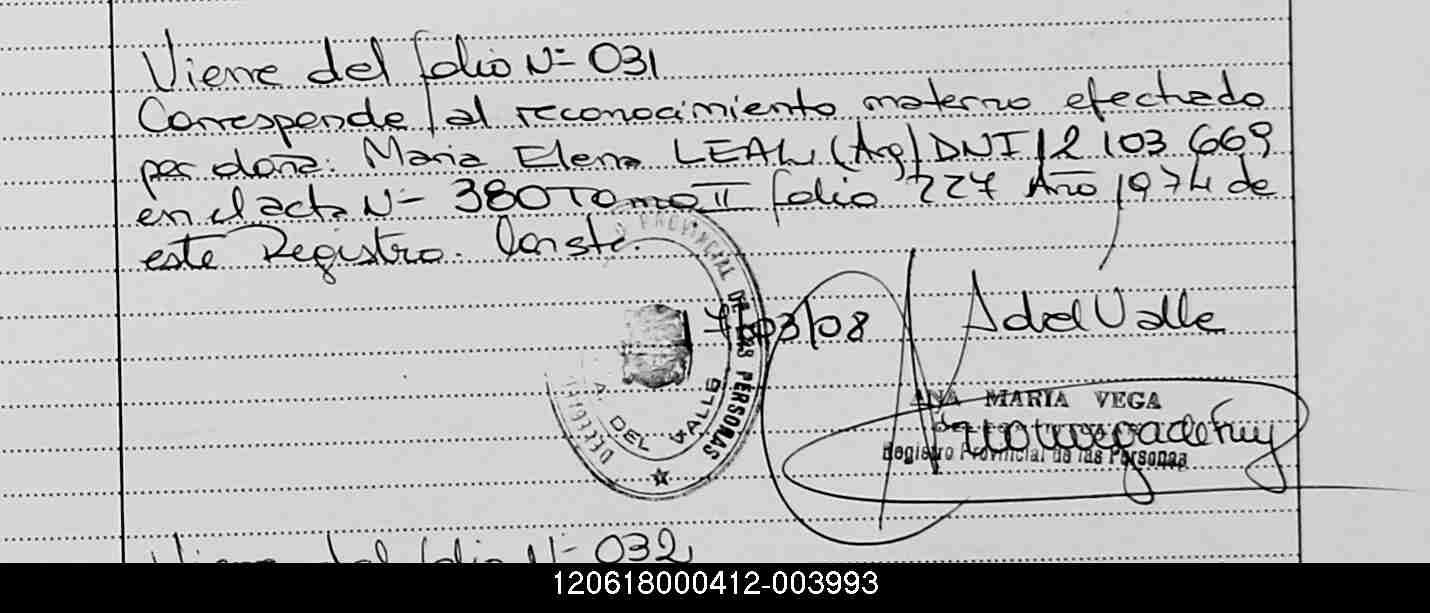 Viene del folio Nº 031
Corresponde al reconocimiento materno efectuado
por doña: Maria Elena LEAL (Arg) DNI 12 103 669
en el acta Nº 380 Tomo II folio 227 Año 1974 de
este Registro. Conste.
17/03/08
A del Valle
PROVINCIAL DE LAS PERSONAS
DEL VALLE
ANA MARIA VEGA
Registro Provincial de las Personas
Viene del folio Nº 032
120618000412-003993